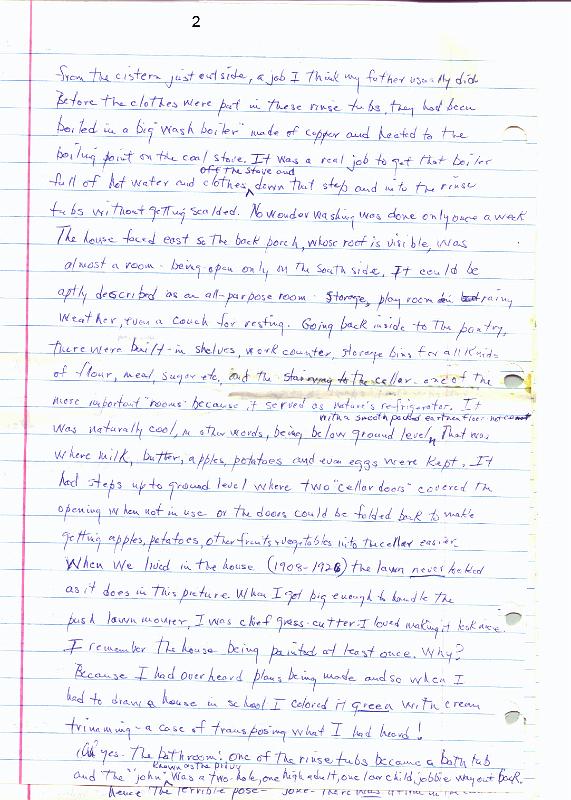 2
from the cistern just outside, a job I think my father usually did
Before the clothes were put in these rinse tubs, they had been
boiled in a big "wash boiler" made of copper and heated to the
boiling point on the coal stove. It was a real job to get that boiler
off the stove and
full of hot water and clothes, down that step and into the rinse
tubs without getting scalded. No wonder washing was done only once a week
The house faced east so the back porch, whose roof is visible, was
almost a room - being open only on the south side. It could be
aptly described as an all-purpose room - storage, play room in rainy
weather, even a couch for resting. Going back inside to the pantry,
there were built-in shelves, work counter, storage bins for all kinds
of flour, meal, sugar etc, and the stairway to the cellar - one of the
more important "rooms" because it served as nature's refrigerator. It
with a smooth packed earthen floor - not cement
was naturally cool, in other words, being below ground level, That was
where milk, butter, apples, potatoes and even eggs were kept. It
had steps up to ground level where two "cellar doors" covered the
opening when not in use or the doors could be folded back to make
getting apples, potatoes, other fruits & vegetables into the cellar easier.
When we lived in the house (1908-1926) the lawn never looked
as it does in this picture. When I got big enough to handle the
push lawn mower, I was chief grass-cutter. I loved making it look nice.
I remember the house being painted at least once. Why?
Because I had overheard plans being made and so when I
had to draw a house in school I colored it green with cream
trimming - a case of transposing what I had heard!
Oh yes - The bathroom: one of the rinse tubs became a bath tub
known as the privy
and the "john" was a two-hole, one high adult, one low child, jobbie way out back. -
hence the terrible pose - joke - there was